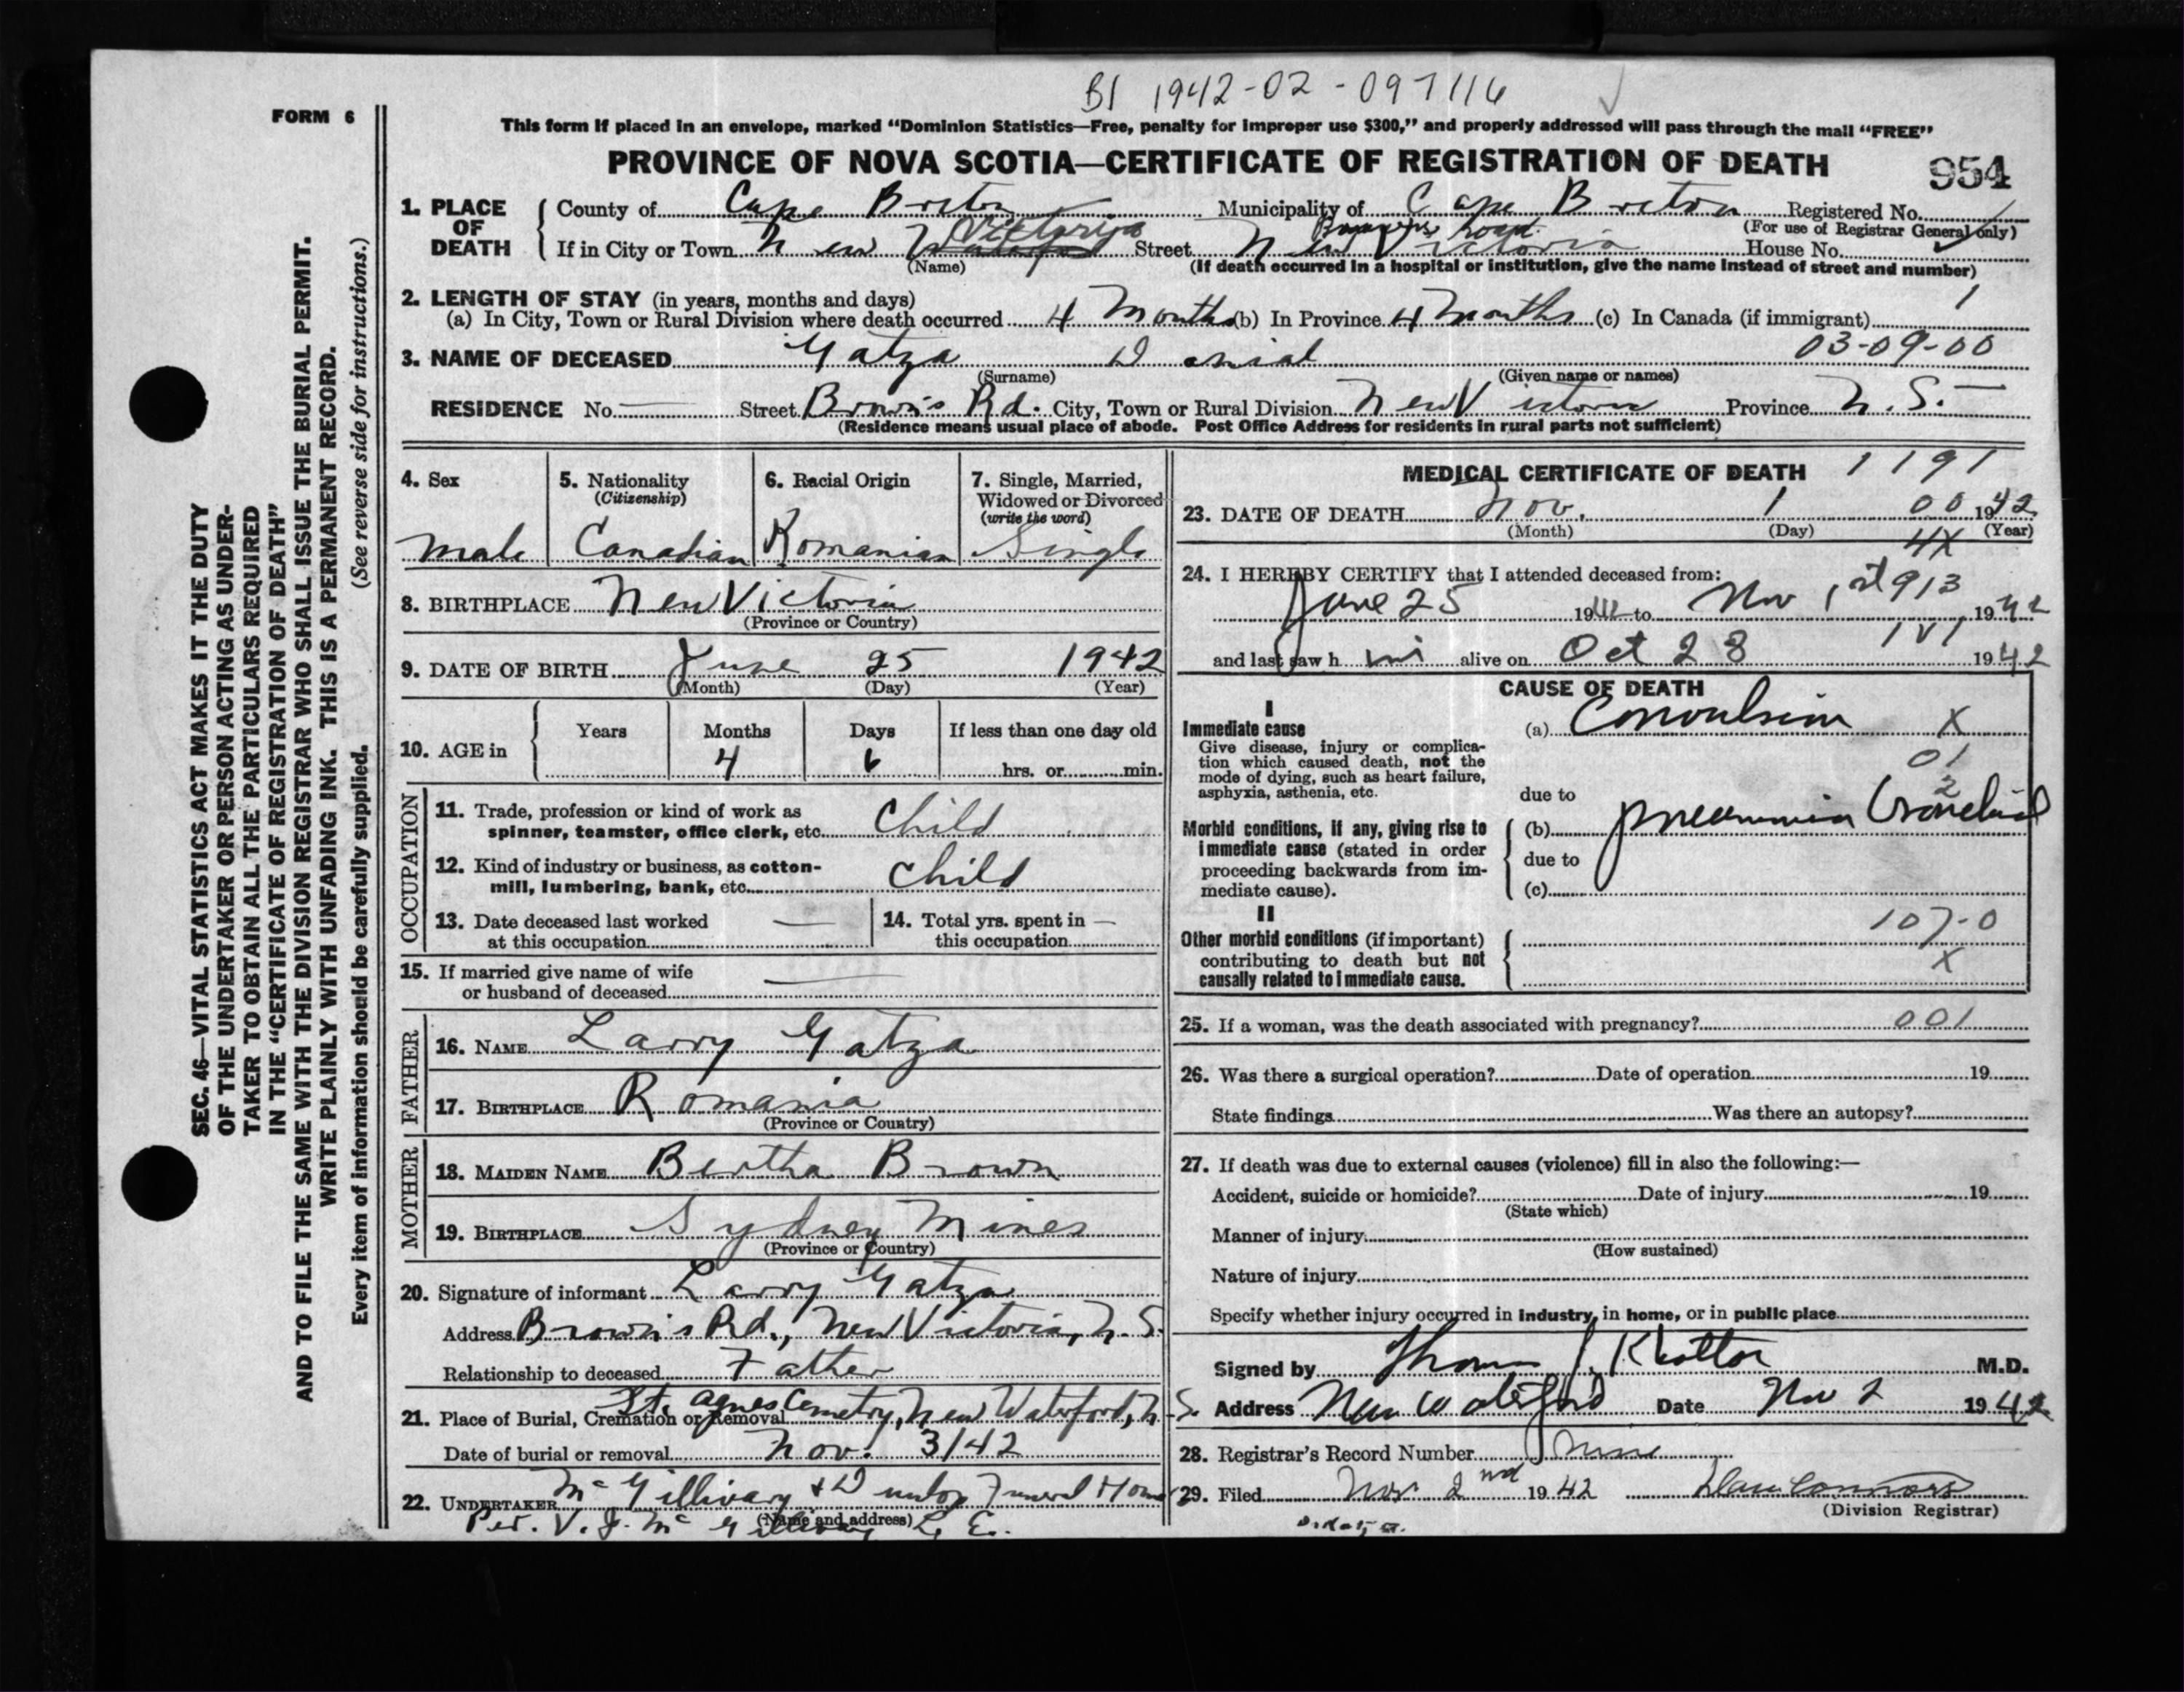 B1 1942-02-097116
FORM 6
This form if placed in an envelope, marked “Dominion Statistics—Free, penalty for improper use $300,” and properly addressed will pass through the mail “FREE”
PROVINCE OF NOVA SCOTIA—CERTIFICATE OF REGISTRATION OF DEATH
954
1. PLACE OF DEATH
County of Cape Breton Municipality of Cape Breton Registered No.
(For use of Registrar General only)
Victoria
Road
If in City or Town New Street New Victoria House No.
(Name) (If death occurred in a hospital or institution, give the name instead of street and number)
2. LENGTH OF STAY (in years, months and days) 1
(a) In City, Town or Rural Division where death occurred 4 Months (b) In Province 4 Months (c) In Canada (if immigrant)
3. NAME OF DECEASED Gatza Danial 03-09-00
(Surname) (Given name or names)
RESIDENCE No. — Street Brown's Rd. City, Town or Rural Division New Victoria Province N. S. —
(Residence means usual place of abode. Post Office Address for residents in rural parts not sufficient)
4. Sex 5. Nationality (Citizenship) 6. Racial Origin 7. Single, Married, Widowed or Divorced (write the word)
Male Canadian Romanian Single
8. BIRTHPLACE New Victoria
(Province or Country)
9. DATE OF BIRTH June 25 1942
(Month) (Day) (Year)
10. AGE in Years Months Days If less than one day old
4 6 hrs. or min.
OCCUPATION
11. Trade, profession or kind of work as
spinner, teamster, office clerk, etc. Child
12. Kind of industry or business, as cotton-
mill, lumbering, bank, etc. Child
13. Date deceased last worked —
at this occupation
14. Total yrs. spent in —
this occupation
15. If married give name of wife —
or husband of deceased
FATHER
16. NAME Larry Gatza
17. BIRTHPLACE Romania
(Province or Country)
MOTHER
18. MAIDEN NAME Bertha Brown
19. BIRTHPLACE Sydney Mines
(Province or Country)
20. Signature of informant Larry Gatza
Address Brown's Rd., New Victoria, N. S.
Relationship to deceased Father
21. Place of Burial, Cremation or Removal St. Agnes Cemetry, New Waterford, N. S.
Date of burial or removal Nov. 3/42
22. UNDERTAKER McGillivary & Dunlop Funeral Home
(Name and address)
Per. V. J. McGillivary L. E.
MEDICAL CERTIFICATE OF DEATH 1191
23. DATE OF DEATH Nov. 1 00 1942
(Month) (Day) (Year)
4X
24. I HEREBY CERTIFY that I attended deceased from:
June 25 19 to Nov 1st 913 1942
and last saw h im alive on Oct 28 1942
CAUSE OF DEATH
I
Immediate cause (a) Convulsion X
Give disease, injury or complica-
tion which caused death, not the
mode of dying, such as heart failure,
asphyxia, asthenia, etc.
01
2
due to
Morbid conditions, if any, giving rise to
immediate cause (stated in order
proceeding backwards from im-
mediate cause).
(b) pneumonia Bronchial
due to
(c)
II
107-0
Other morbid conditions (if important)
contributing to death but not
causally related to immediate cause.
X
25. If a woman, was the death associated with pregnancy? 001
26. Was there a surgical operation? Date of operation 19
State findings Was there an autopsy?
27. If death was due to external causes (violence) fill in also the following:—
Accident, suicide or homicide? Date of injury 19
(State which)
Manner of injury
(How sustained)
Nature of injury
Specify whether injury occurred in industry, in home, or in public place
Signed by M.D.
Address New Waterford Date Nov 2 1942
28. Registrar's Record Number
29. Filed Nov 2nd 1942 Dan Connors
(Division Registrar)
SEC. 46—VITAL STATISTICS ACT MAKES IT THE DUTY
OF THE UNDERTAKER OR PERSON ACTING AS UNDER-
TAKER TO OBTAIN ALL THE PARTICULARS REQUIRED
IN THE “CERTIFICATE OF REGISTRATION OF DEATH”
AND TO FILE THE SAME WITH THE DIVISION REGISTRAR WHO SHALL ISSUE THE BURIAL PERMIT.
WRITE PLAINLY WITH UNFADING INK. THIS IS A PERMANENT RECORD.
Every item of information should be carefully supplied. (See reverse side for instructions.)